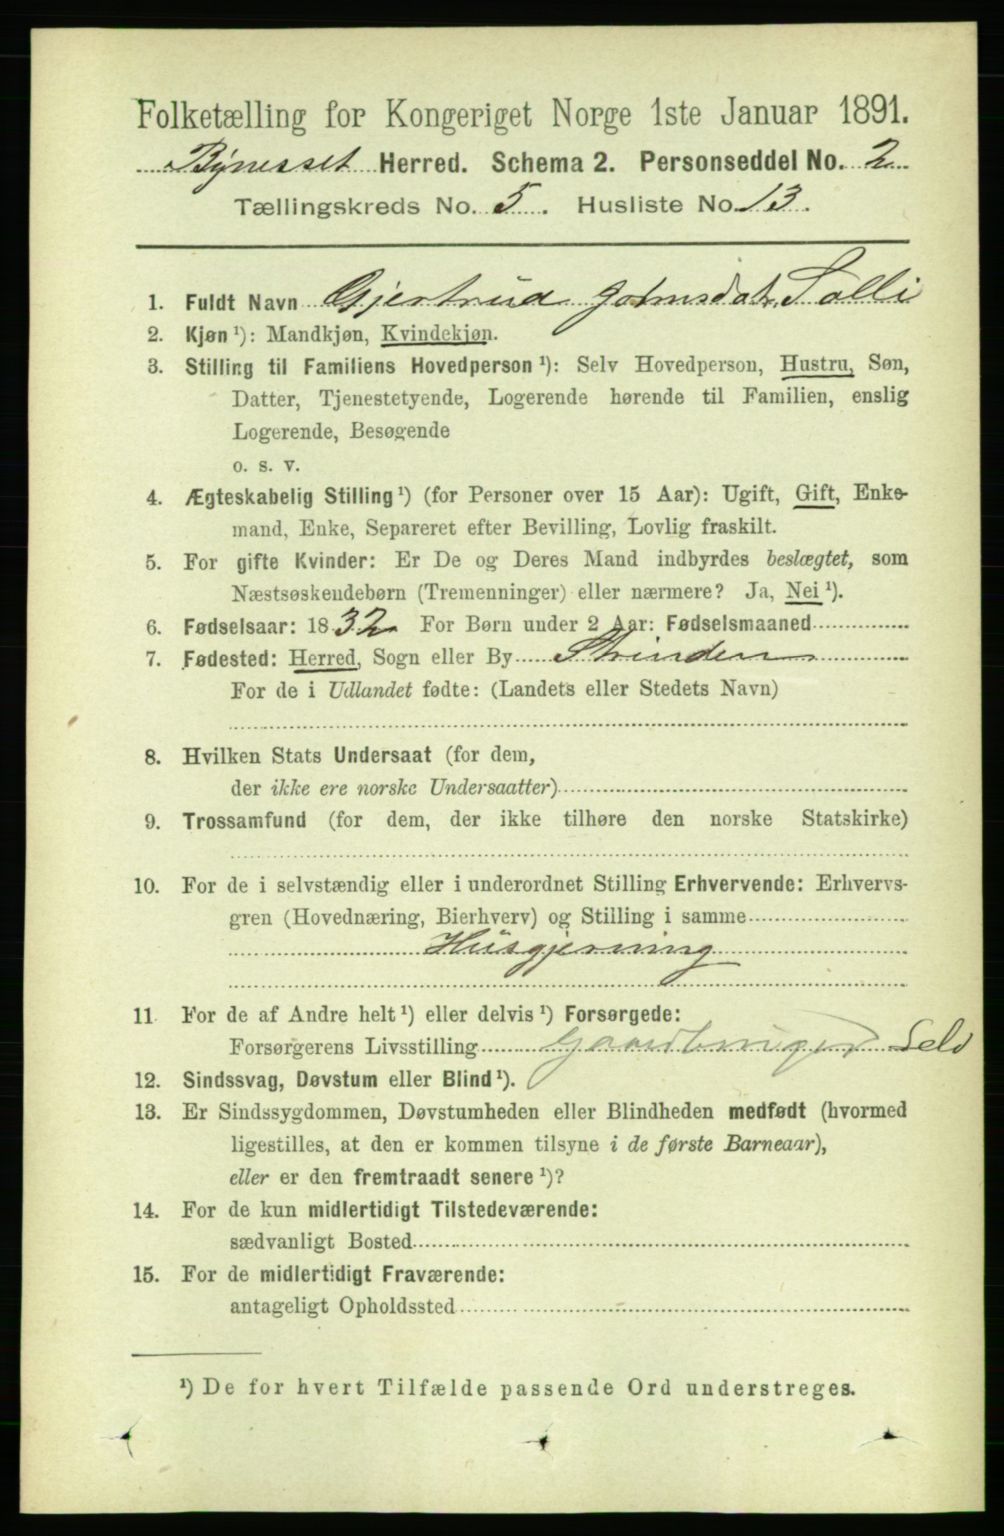 Folketælling for Kongeriget Norge 1ste Januar 1891.
Bynesset Herred. Schema 2. Personseddel No. 2
Tællingskreds No. 5. Husliste No. 13.
1. Fuldt Navn Gjertrud Johnsdatr Solli
2. Kjøn ¹): Mandkjøn, Kvindekjøn.
3. Stilling til Familiens Hovedperson ¹): Selv Hovedperson, Hustru, Søn,
Datter, Tjenestetyende, Logerende hørende til Familien, enslig
Logerende, Besøgende
o. s. v.
4. Ægteskabelig Stilling ¹) (for Personer over 15 Aar): Ugift, Gift, Enke-
mand, Enke, Separeret efter Bevilling, Lovlig fraskilt.
5. For gifte Kvinder: Er De og Deres Mand indbyrdes beslægtet, som
Næstsøskendebørn (Tremenninger) eller nærmere? Ja, Nei ¹).
6. Fødselsaar: 1832 For Børn under 2 Aar: Fødselsmaaned
7. Fødested: Herred, Sogn eller By Strinden
For de i Udlandet fødte: (Landets eller Stedets Navn)
8. Hvilken Stats Undersaat (for dem,
der ikke ere norske Undersaatter)
9. Trossamfund (for dem, der ikke tilhøre den norske Statskirke)
10. For de i selvstændig eller i underordnet Stilling Erhvervende: Erhvervs-
gren (Hovednæring, Bierhverv) og Stilling i samme
Husgjerning
11 For de af Andre helt ¹) eller delvis ¹) Forsørgede:
Forsørgerens Livsstilling Gaardbruger Selv
12. Sindssvag, Døvstum eller Blind ¹).
13. Er Sindssygdommen, Døvstumheden eller Blindheden medfødt (hvormed
ligestilles, at den er kommen tilsyne i de første Barneaar),
eller er den fremtraadt senere ¹)?
14. For de kun midlertidigt Tilstedeværende:
sædvanligt Bosted
15. For de midlertidigt Fraværende:
antageligt Opholdssted
¹) De for hvert Tilfælde passende Ord understreges.